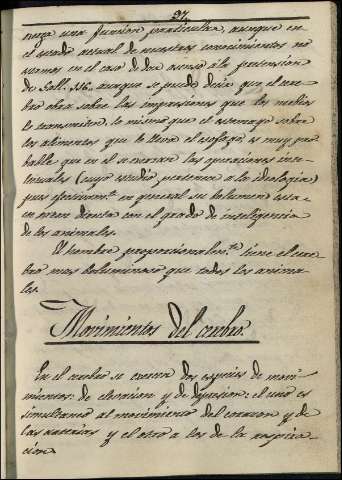 37.
nerge una funcion particular, aunque en
el estado actual de nuestros conocimientos no
estamos en el caso de dar asenso á la pretension
de Gall. Sin aunque se puede decir que el cere
bro obra sobre las impresiones que los nervios
le transmiten, lo mismo que el estomago sobre
los alimentos que le lleva el esofago es muy pro
bable que en el se exerzan las operaciones inte-
lectuales (cuyo estudio pertenece a la ideologia)
pues efectivamte en general su bolumen esta
en razon directa con el grado de inteligencia
de los animales.
El hombre proporcionalmte tiene el cere
bro mas boluminoso que todos los anima-
les.
Movimientos del cerebro.
En el cerebro se exercen dos especies de movi
mientos: de elevacion y de depresion: el uno es
simultaneo al movimiento del corazon y de
las arterias y el otro a los de la respira-
cion.